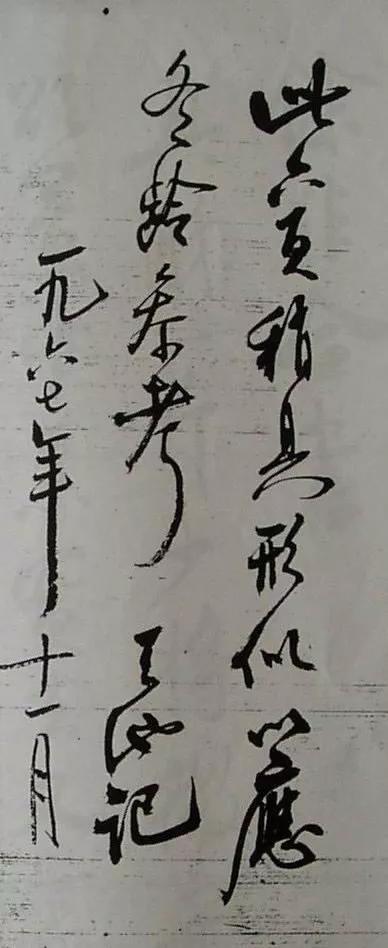 此六页稍具形似以應
冬龄参考 天池记
一九六七年十一月